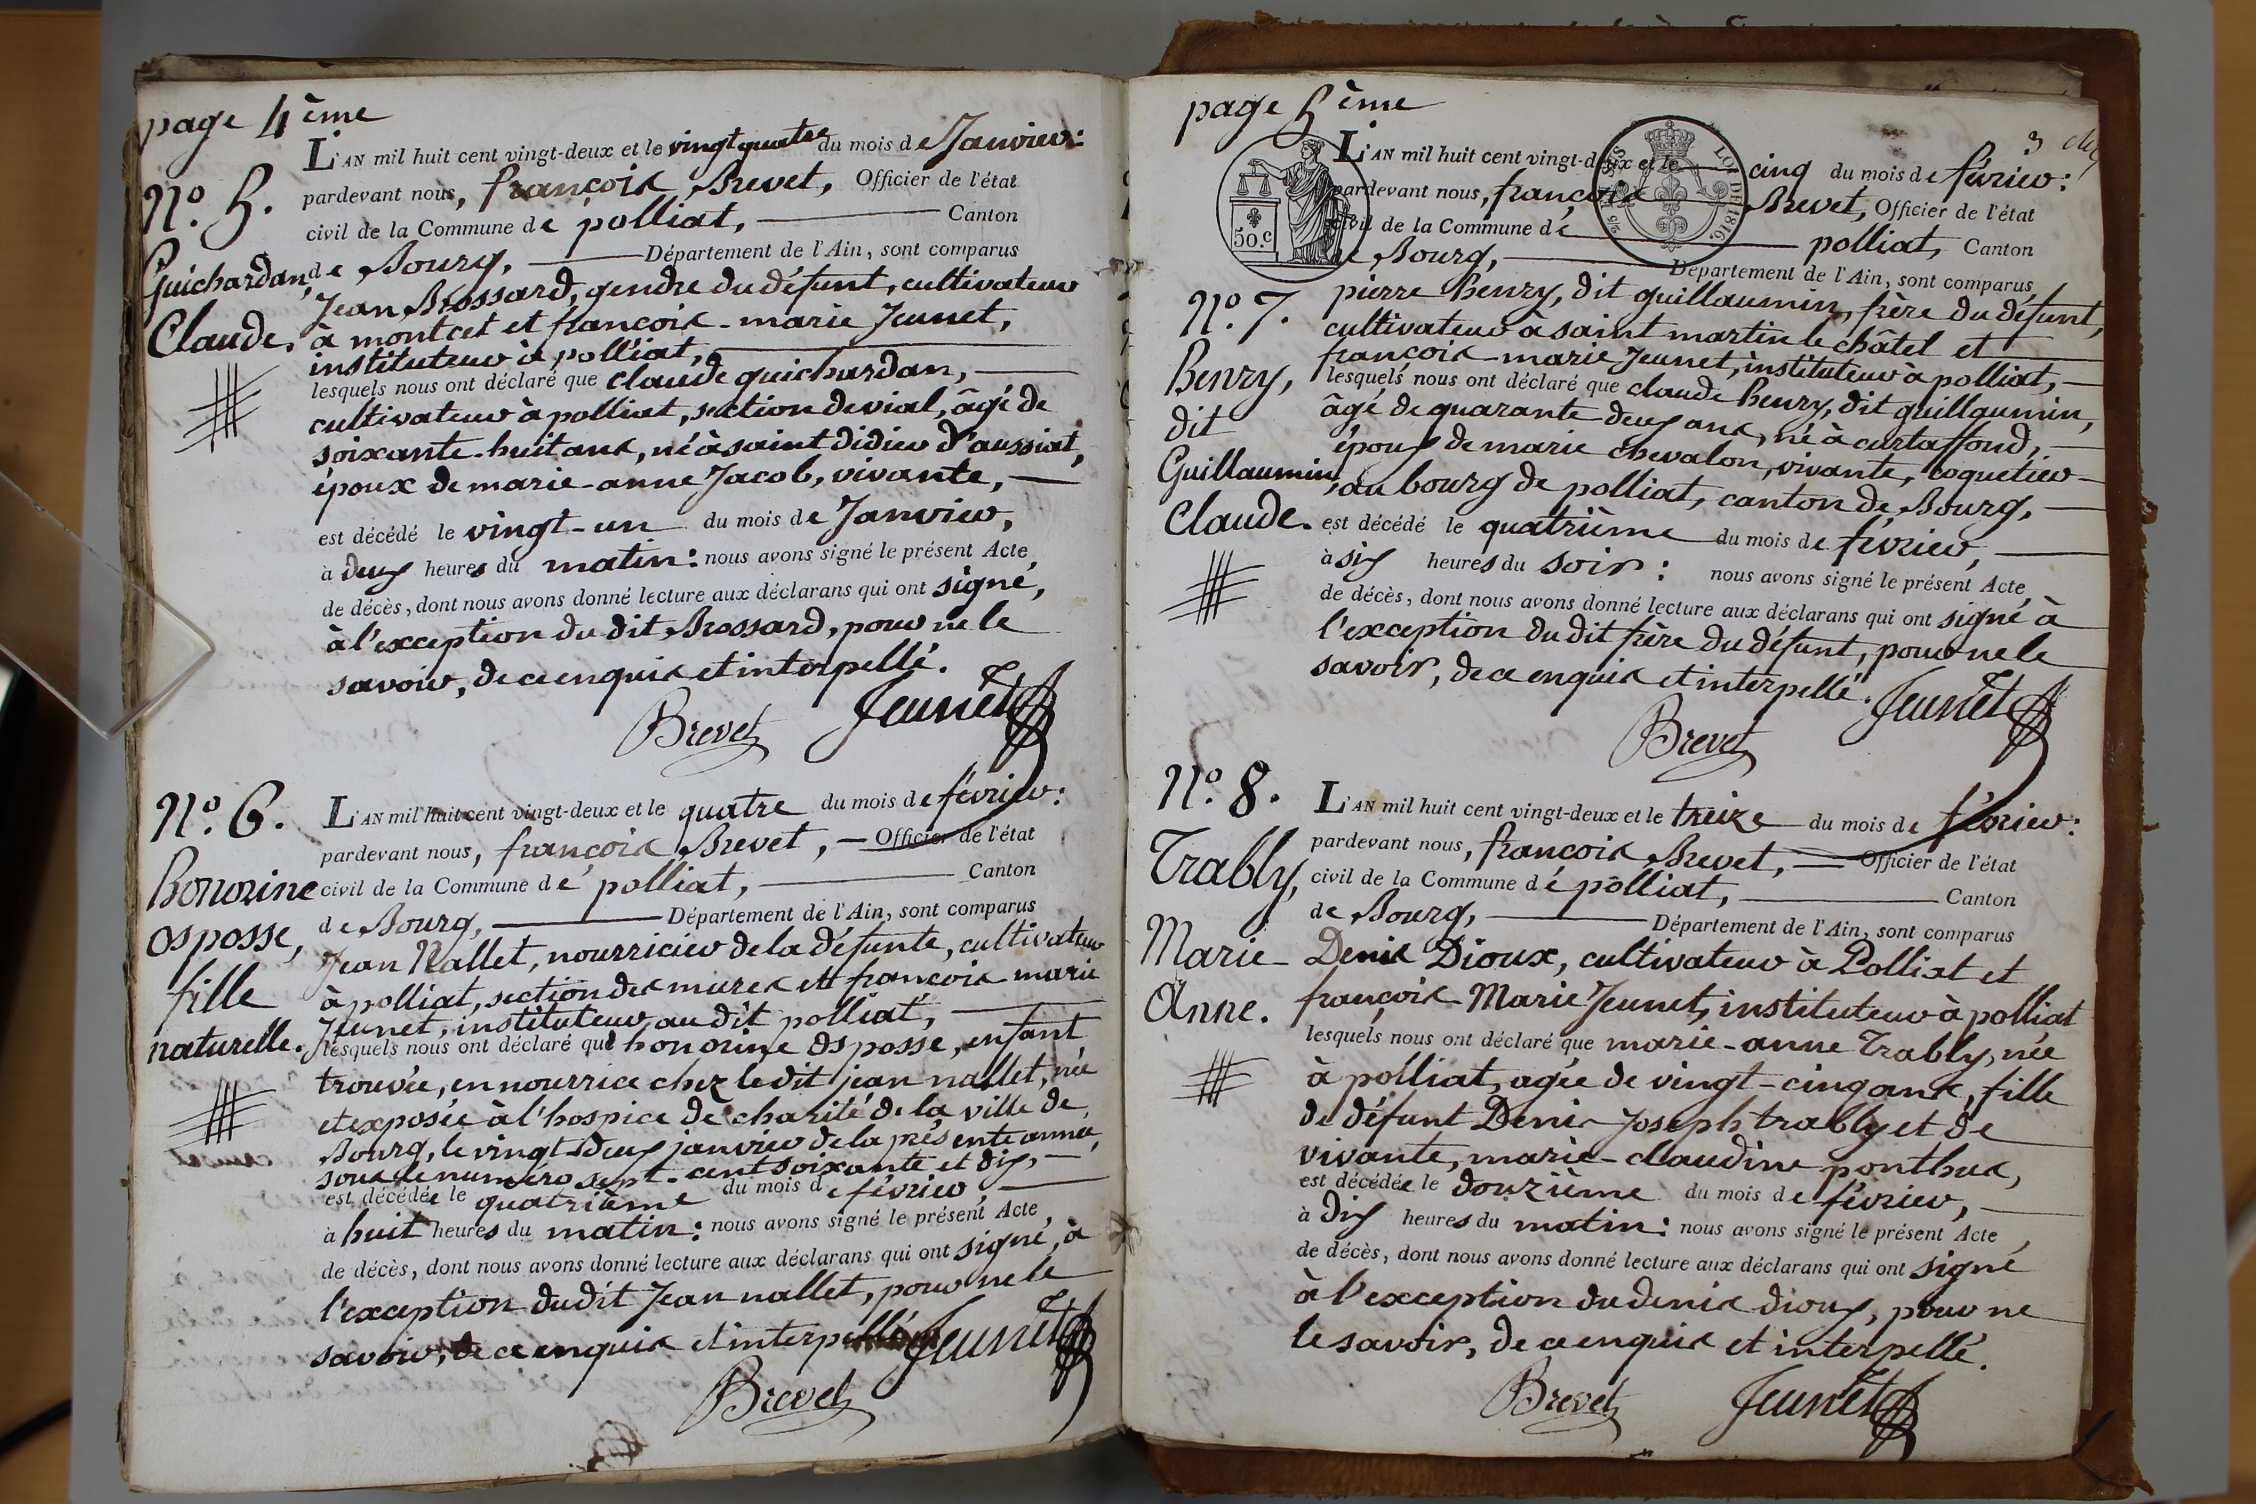 page 4ème
N.° 5.
Guichardan,
Claude.
L'AN mil huit cent vingt-deux et le vingt quatre du mois de Janvier:
pardevant nous, françois Brevet, Officier de l'état
civil de la Commune de polliat, Canton
de Bourg, Département de l'Ain, sont comparus
Jean Brossard, gendre du défunt, cultivateur
à montcet et françois-marie Jeunet,
instituteur à polliat,
lesquels nous ont déclaré que claude guichardan,
cultivateur à polliat, section de vial, âgé de
soixante-huit ans, né à saint didier d'aussiat,
époux de marie-anne Jacob, vivante,
est décédé le vingt-un du mois de Janvier,
à deux heures du matin: nous avons signé le présent Acte
de décès, dont nous avons donné lecture aux déclarans qui ont signé,
à l'exception du dit Brossard, pour ne le
savoir, de ce enquis et interpellé.
Brevet Jeunet
N.° 6.
honorine
osposse,
fille
naturelle.
L'AN mil huit cent vingt-deux et le quatre du mois de février:
pardevant nous, françois Brevet, Officier de l'état
civil de la Commune de polliat, Canton
de Bourg, Département de l'Ain, sont comparus
Jean Nallet, nourricier de la défunte, cultivateur
à polliat, section des mures et françois marie
Jeunet, instituteur au dit polliat,
lesquels nous ont déclaré que honorine osposse, enfant
trouvée, en nourrice chez le dit jean nallet, née
et exposée à l'hospice de charité de la ville de
Bourg, le vingt-deux janvier de la présente année,
sous le numéro sept-cent soixante et dix,
est décédée le quatrième du mois de février,
à huit heures du matin: nous avons signé le présent Acte
de décès, dont nous avons donné lecture aux déclarans qui ont signé, à
l'exception dudit Jean nallet, pour ne le
savoir, de ce enquis et interpellé.
Jeunet
Brevet
page 5ème
3
50.C
LOI DE 1816.
N.° 7.
henry,
dit
Guillaumin,
Claude.
L'AN mil huit cent vingt-deux et le cinq du mois de février:
pardevant nous, françois Brevet, Officier de l'état
civil de la Commune de polliat, Canton
de Bourg, Département de l'Ain, sont comparus
pierre henry, dit guillaumin, frère du défunt,
cultivateur à saint martin le châtel et
françois-marie Jeunet, instituteur à polliat,
lesquels nous ont déclaré que claude henry, dit guillaumin,
âgé de quarante-deux ans, né à curtaffond,
époux de marie chevalon, vivante, coquetier
au bourg de polliat, canton de Bourg,
est décédé le quatrième du mois de février,
à six heures du soir: nous avons signé le présent Acte
de décès, dont nous avons donné lecture aux déclarans qui ont signé à
l'exception du dit frère du défunt, pour ne le
savoir, de ce enquis et interpellé.
Jeunet
Brevet
N.° 8.
Trably,
Marie-
Anne.
L'AN mil huit cent vingt-deux et le treize du mois de février:
pardevant nous, françois Brevet, Officier de l'état
civil de la Commune de polliat, Canton
de Bourg, Département de l'Ain, sont comparus
Denis Dioux, cultivateur à Polliat et
françois-Marie Jeunet, instituteur à polliat
lesquels nous ont déclaré que marie-anne Trably, née
à polliat, agée de vingt-cinq ans, fille
de défunt Denis Joseph trably et de
vivante, marie-claudine ponthus,
est décédée le douzième du mois de février,
à dix heures du matin: nous avons signé le présent Acte
de décès, dont nous avons donné lecture aux déclarans qui ont signé
à l'exception du denis dioux, pour ne
le savoir, de ce enquis et interpellé.
Brevet Jeunet